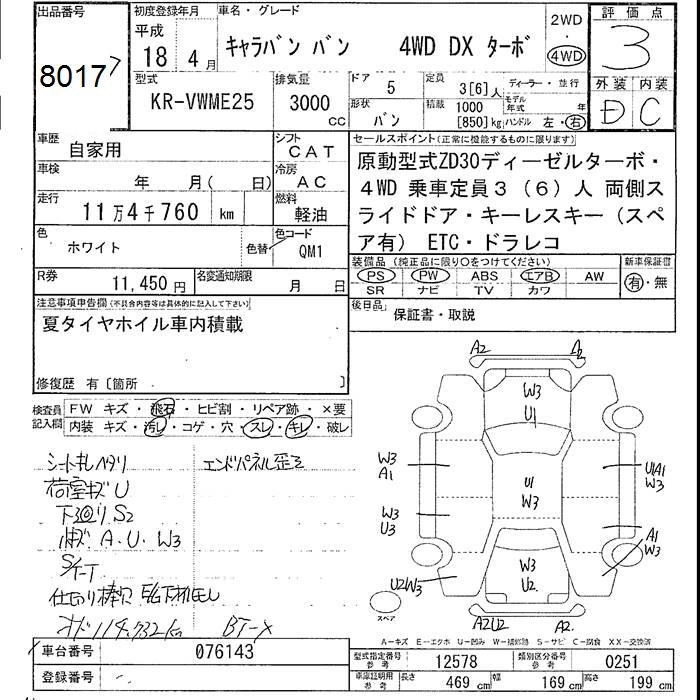 出品番号
8017
初度登録年月
平成
18 4 月
車名・グレード
キャラバン バン 4WD DX ターボ
2WD
・
4WD
評価点
3
外装 内装
D C
型式
KR-VWME25
排気量
3000
cc
ドア
5
形状
バン
定員
3[6]人
積載
1000
[850]kg
ディーラー・並行
モデル年式 年
ハンドル 左・右
車歴
自家用
車検
年 月( 日)
走行
11万4千760 km
色
ホワイト
色替
シフト
CAT
冷房
AC
燃料
軽油
色コード
QM1
R券
11,450円
名変通知期限
月 日
セールスポイント(正常に機能するものに限ります)
原動型式ZD30ディーゼルターボ・
4WD 乗車定員3(6)人 両側ス
ライドドア・キーレスキー(スペ
ア有) ETC・ドラレコ
装備品(純正品に限り○をつけてください)
PS PW ABS エアB AW
SR ナビ TV カワ
新車保証書
有・無
後日品
保証書・取説
注意事項申告欄(不具合内容等は具体的に記入して下さい)
夏タイヤホイル車内積載
修復歴 有〔箇所 〕
検査員記入欄
FW キズ・飛石・ヒビ割・リペア跡・×要
内装 キズ・汚レ・コゲ・穴・スレ・キレ・破レ
シート札 ヘタリ
エンドパネル歪ミ
荷室キズ U
下回り S2
A.U.W3
114,732km
BT-×
A2 A2
W3
U1
W3
A1
U1
W3
U1A1
W3
W3
U3
A1
W3
W3
U2
U2W3
A2U2 A2
スペア
A-キズ E-エクボ U-凹み W-補修跡 S-サビ C-腐食 XX-交換済
車台番号
076143
登録番号
型式指定番号
参考
12578
類別区分番号
参考
0251
車庫証明用
参考
長さ 469 cm 幅 169 cm 高さ 199 cm